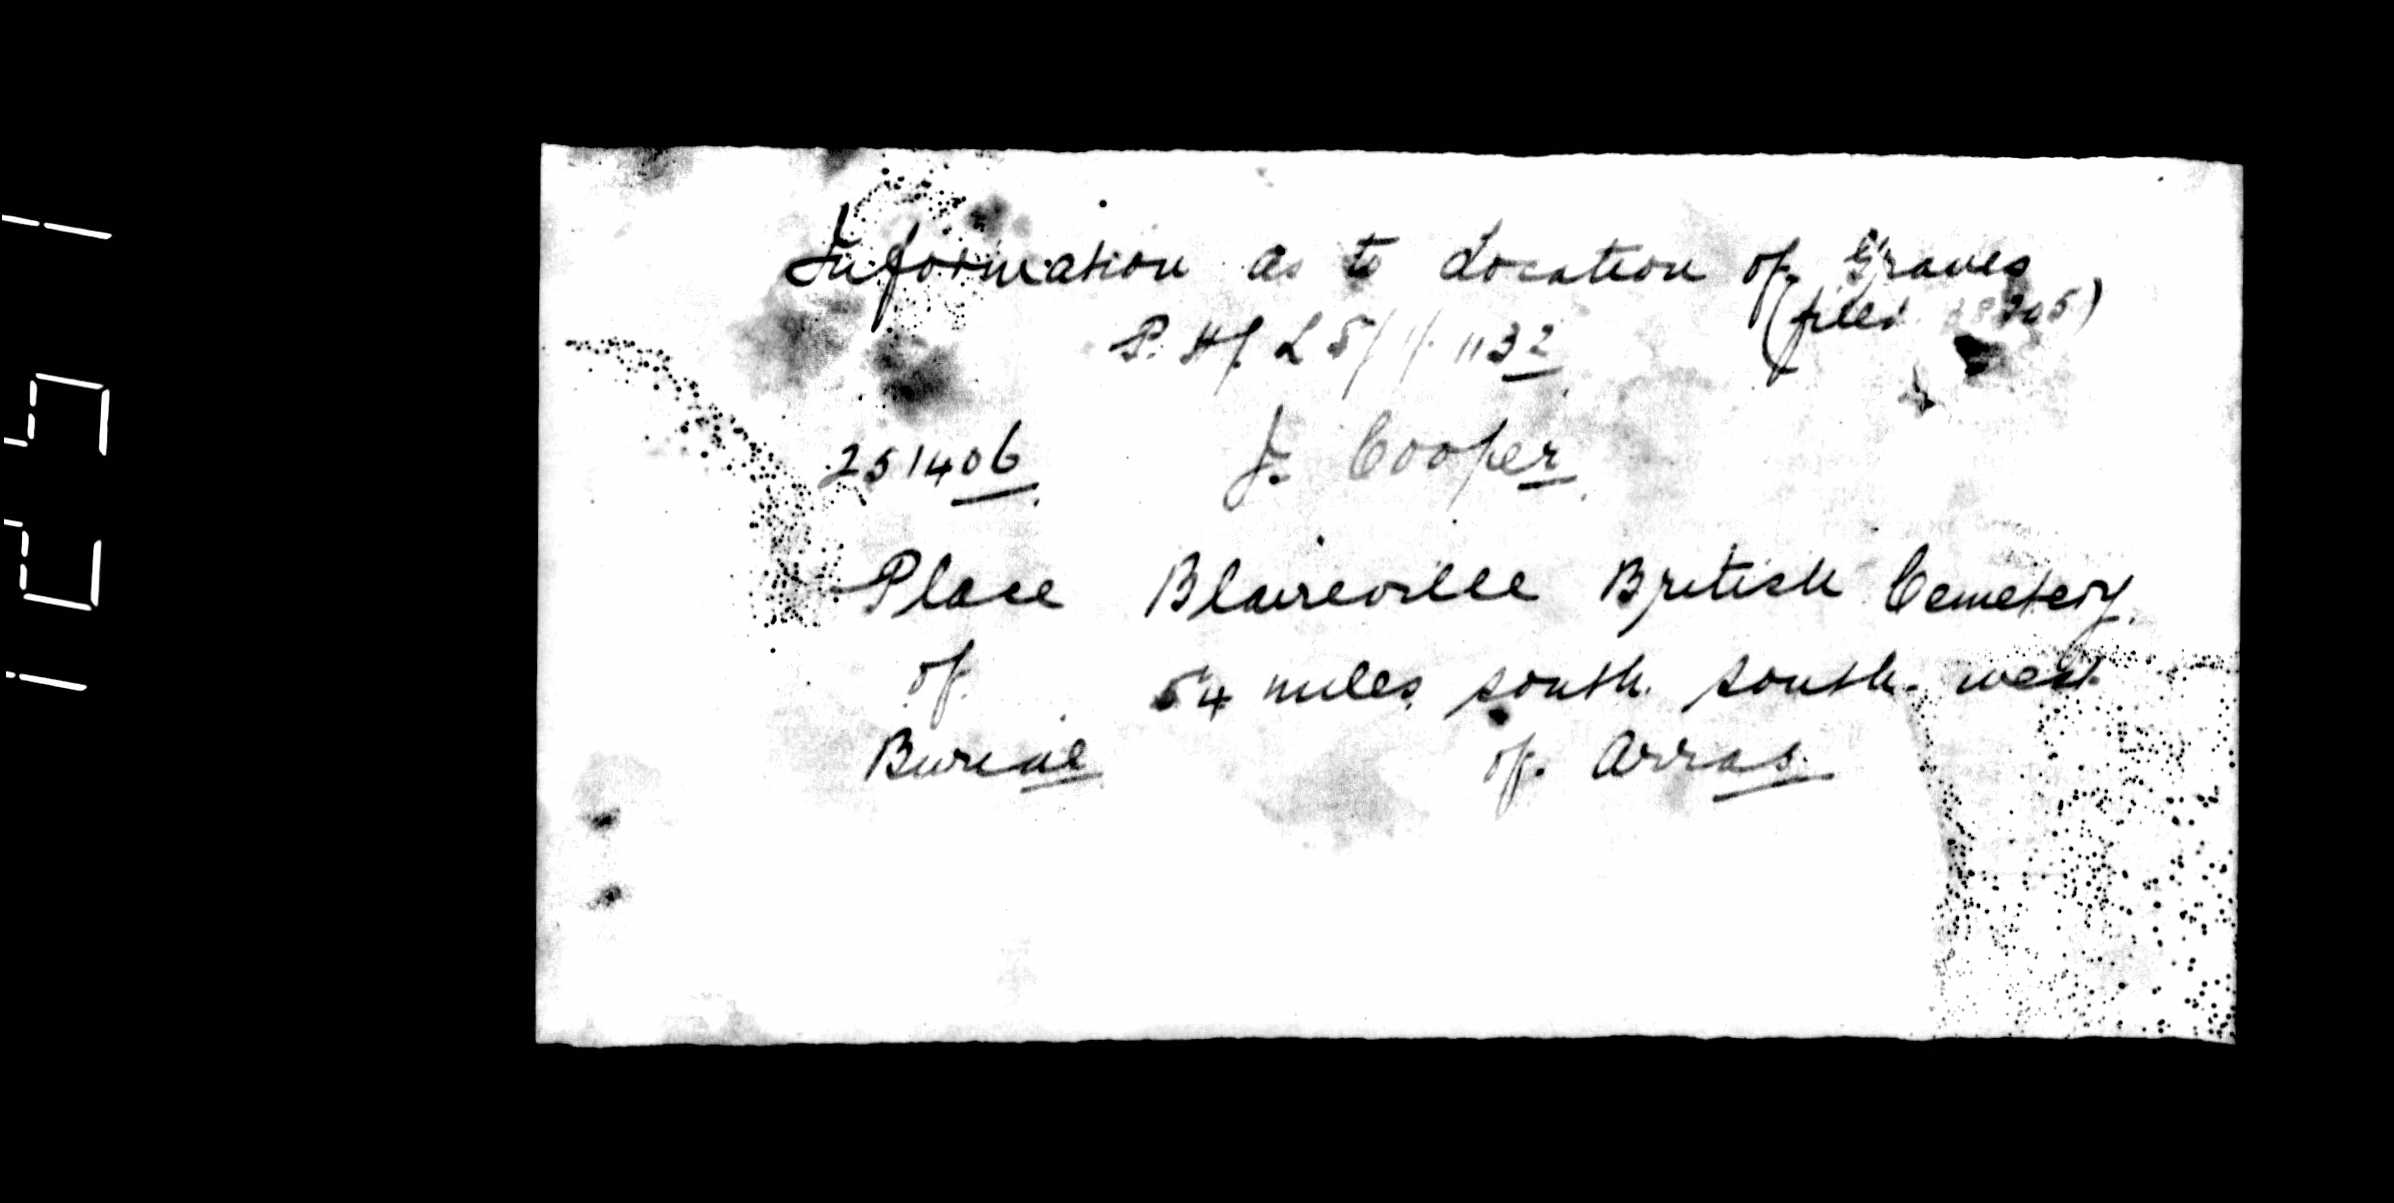 Information as to Location of Graves
(filed 305)
P. H/. L 5/1/. 1132
251406. J. Cooper.
Place Blaireville British Cemetery.
of 5¼ miles south south-west
Burial of Arras.